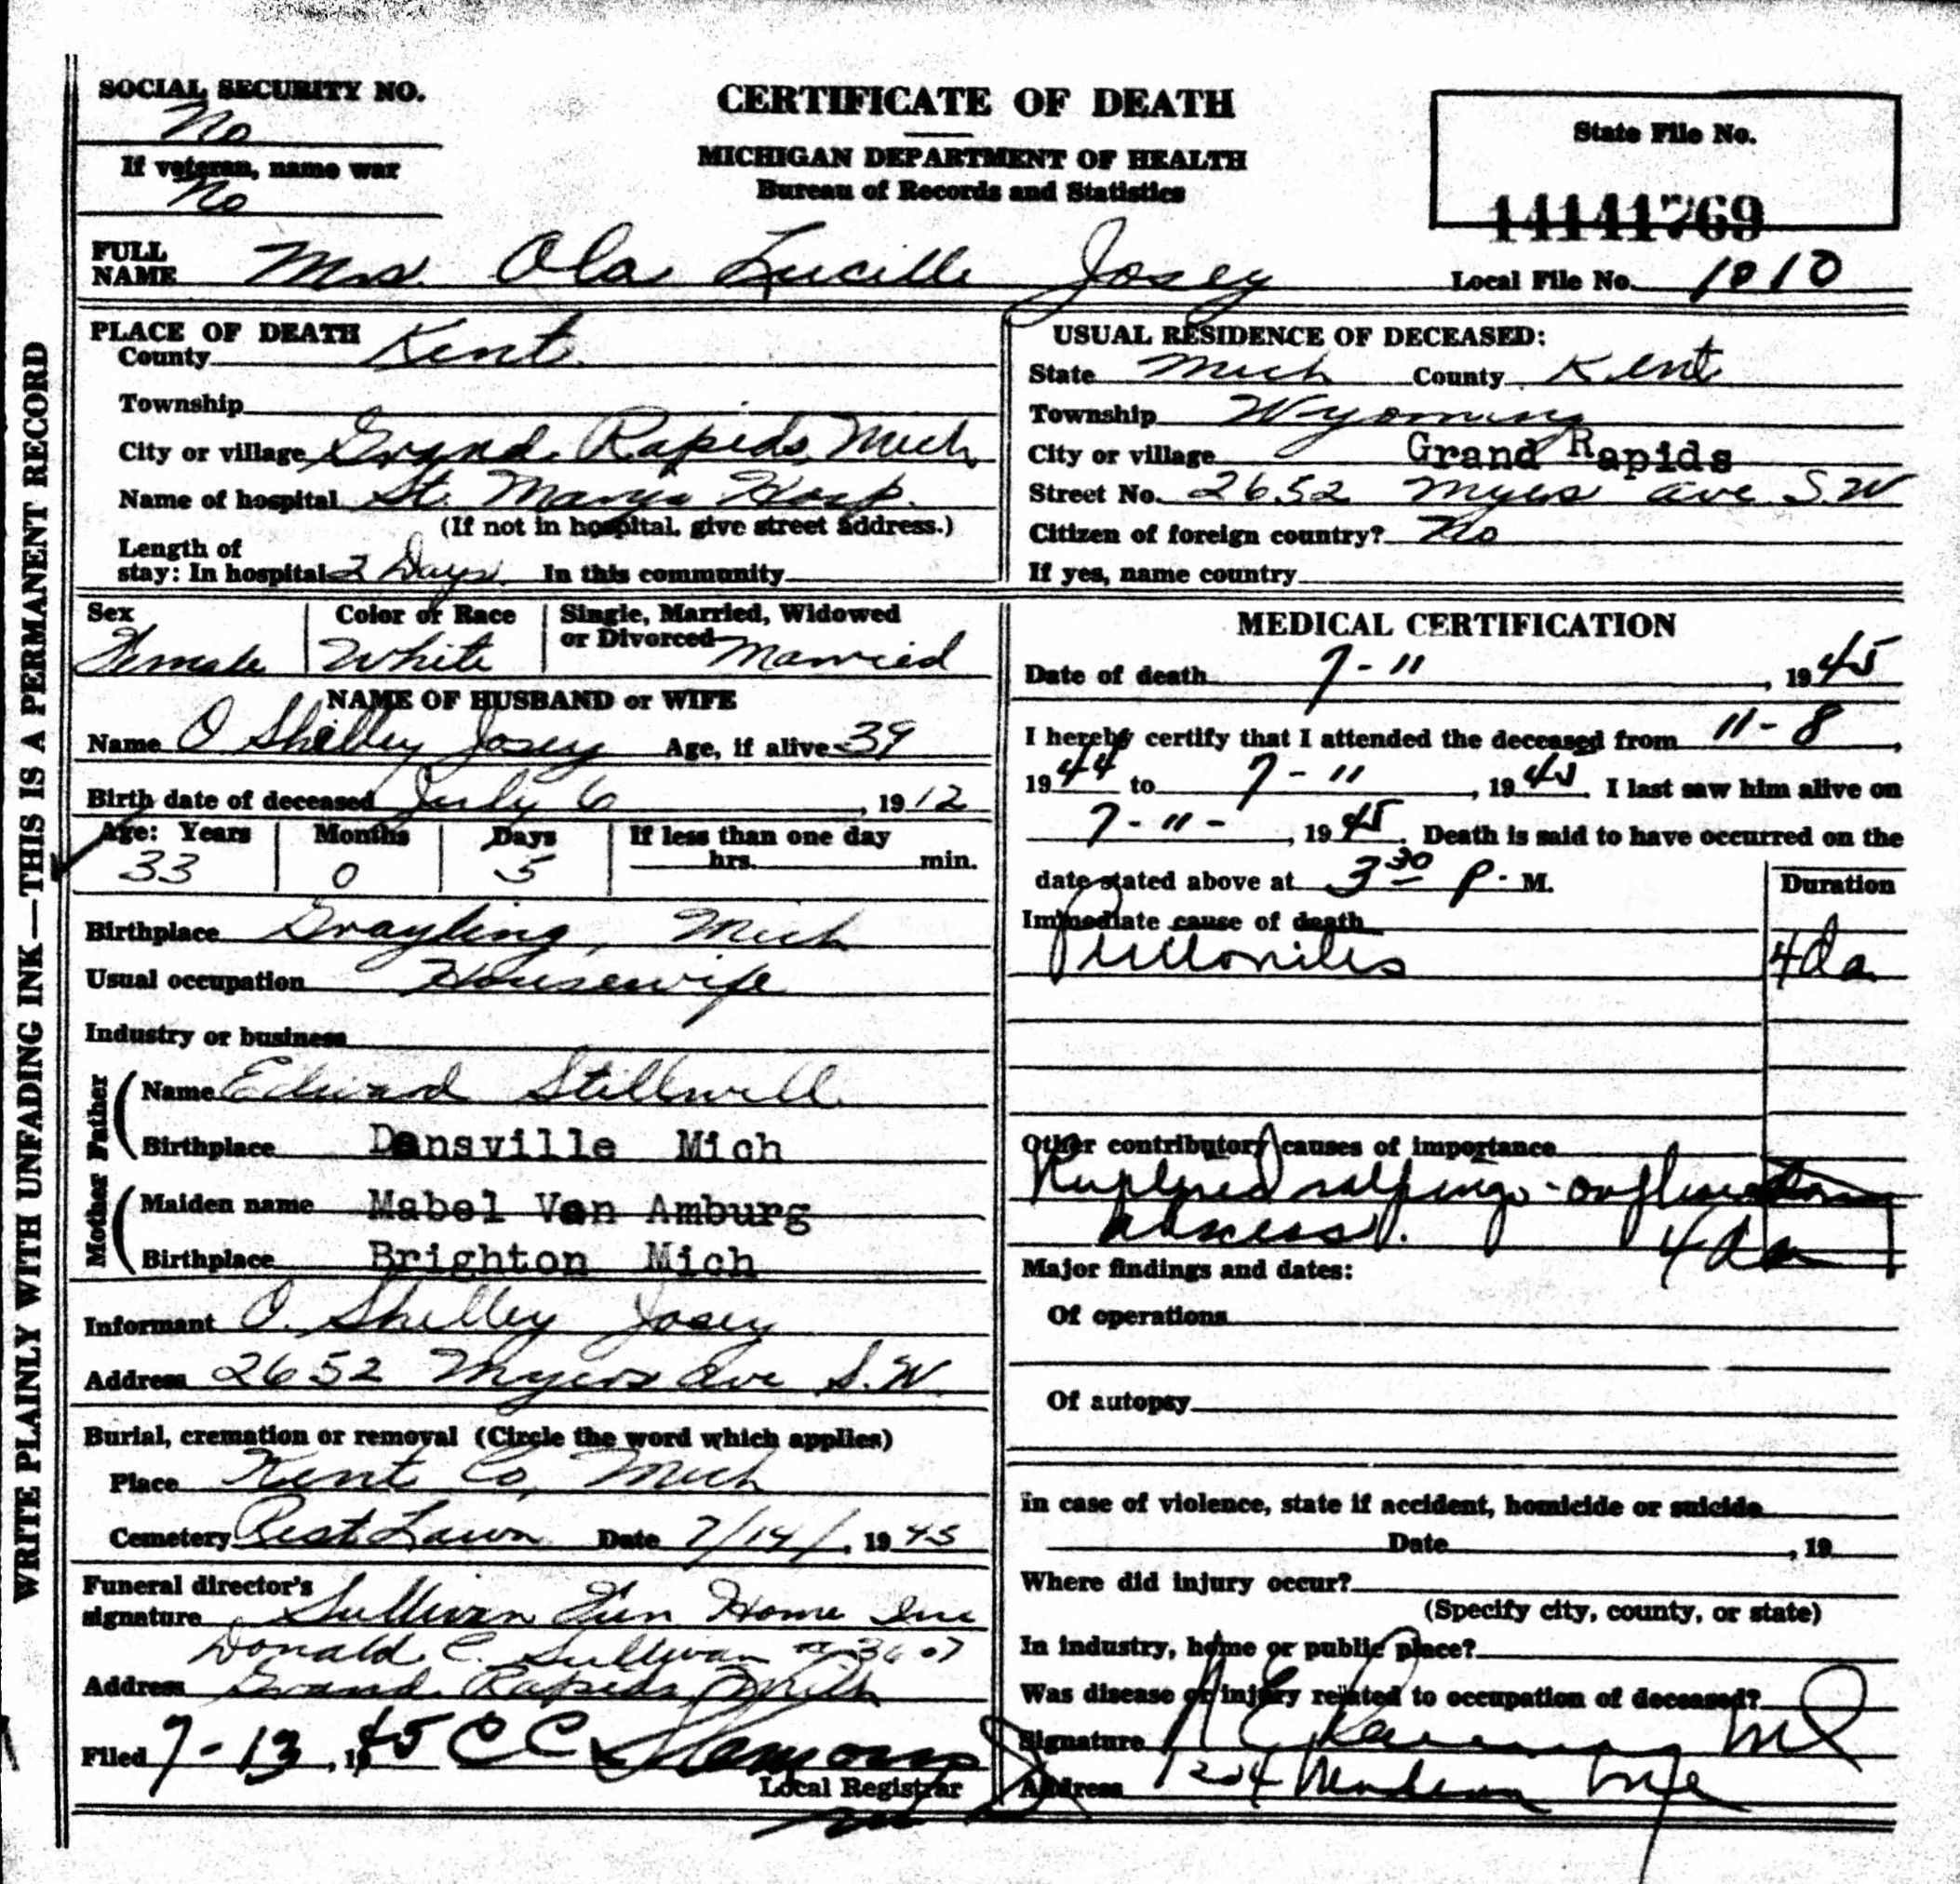 SOCIAL SECURITY NO.
No
If veteran, name war
No
CERTIFICATE OF DEATH
MICHIGAN DEPARTMENT OF HEALTH
Bureau of Records and Statistics
State File No.
14141769
FULL NAME Mrs. Ola Lucille Josey
Local File No. 1010
PLACE OF DEATH
County Kent
Township
City or village Grand Rapids, Mich
Name of hospital St. Marys Hosp.
(If not in hospital, give street address.)
Length of
stay: In hospital 2 Days In this community
USUAL RESIDENCE OF DECEASED:
State Mich County Kent
Township Wyoming
City or village Grand Rapids
Street No. 2652 Myers Ave S.W
Citizen of foreign country? No
If yes, name country
Sex Female
Color or Race White
Single, Married, Widowed
or Divorced Married
NAME OF HUSBAND or WIFE
Name O Shelley Josey Age, if alive 39
Birth date of deceased July 6, 1912
Age: Years Months Days If less than one day
33 0 5 hrs. min.
Birthplace Grayling, Mich
Usual occupation Housewife
Industry or business
Father
Name Edward Stillwell
Birthplace Dansville Mich
Mother
Maiden name Mabel Van Amburg
Birthplace Brighton Mich
Informant O. Shelley Josey
Address 2652 Myers Ave S.W.
Burial, cremation or removal (Circle the word which applies)
Place Kent Co, Mich
Cemetery Rest Lawn Date 7/14/, 1945
Funeral director's
signature Sullivan Fun Home Inc
Donald C. Sullivan 3607
Address Grand Rapids Mich
Filed 7-13, 1945 C C
Local Registrar
MEDICAL CERTIFICATION
Date of death 7-11, 1945
I hereby certify that I attended the deceased from 11-8,
1944 to 7-11, 1945. I last saw him alive on
7-11-, 1945. Death is said to have occurred on the
date stated above at 3 30 P. M.
Duration
Immediate cause of death
Peritonitis 4 da
Other contributory causes of importance
Ruptured salpingo-
abscess. 4 da
Major findings and dates:
Of operations
Of autopsy
In case of violence, state if accident, homicide or suicide
Date , 19
Where did injury occur?
(Specify city, county, or state)
In industry, home or public place?
Was disease or injury related to occupation of deceased?
Signature MD
Address 1204 Madison
WRITE PLAINLY WITH UNFADING INK—THIS IS A PERMANENT RECORD